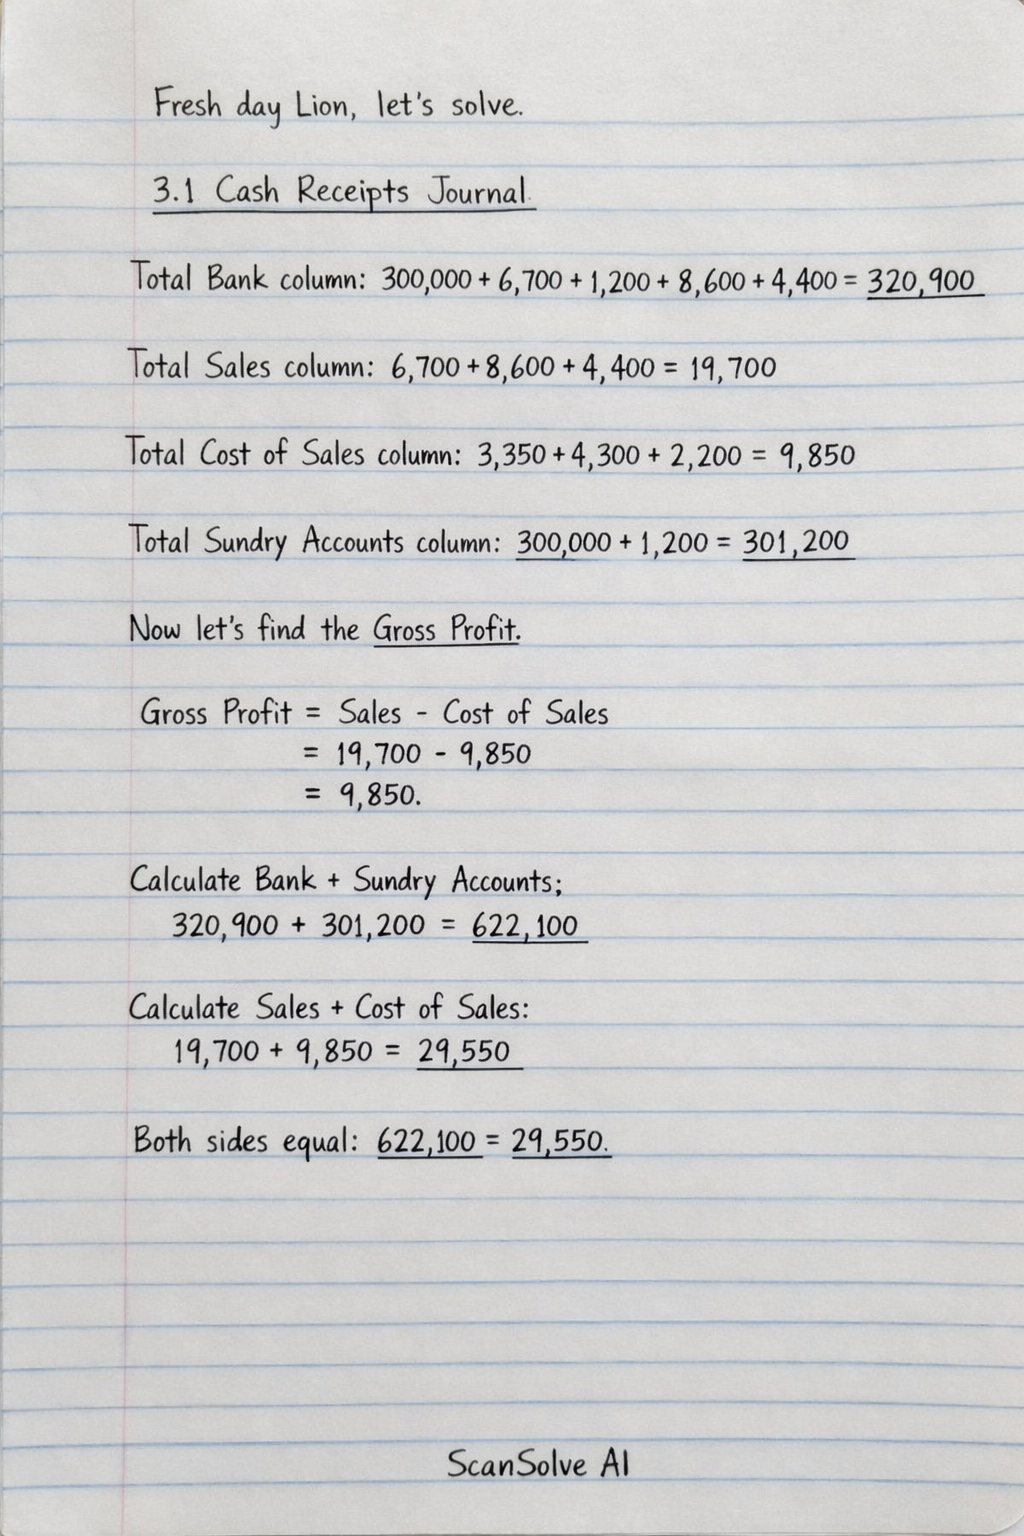 Fresh day Lion, let's solve.
3.1 Cash Receipts Journal.
Total Bank column: 300,000 + 6,700 + 1,200 + 8,600 + 4,400 = 320,900
Total Sales column: 6,700 + 8,600 + 4,400 = 19,700
Total Cost of Sales column: 3,350 + 4,300 + 2,200 = 9,850
Total Sundry Accounts column: 300,000 + 1,200 = 301,200
Now let's find the Gross Profit.
Gross Profit = Sales - Cost of Sales
= 19,700 - 9,850
= 9,850.
Calculate Bank + Sundry Accounts;
320,900 + 301,200 = 622,100
Calculate Sales + Cost of Sales:
19,700 + 9,850 = 29,550
Both sides equal: 622,100 = 29,550.
ScanSolve AI